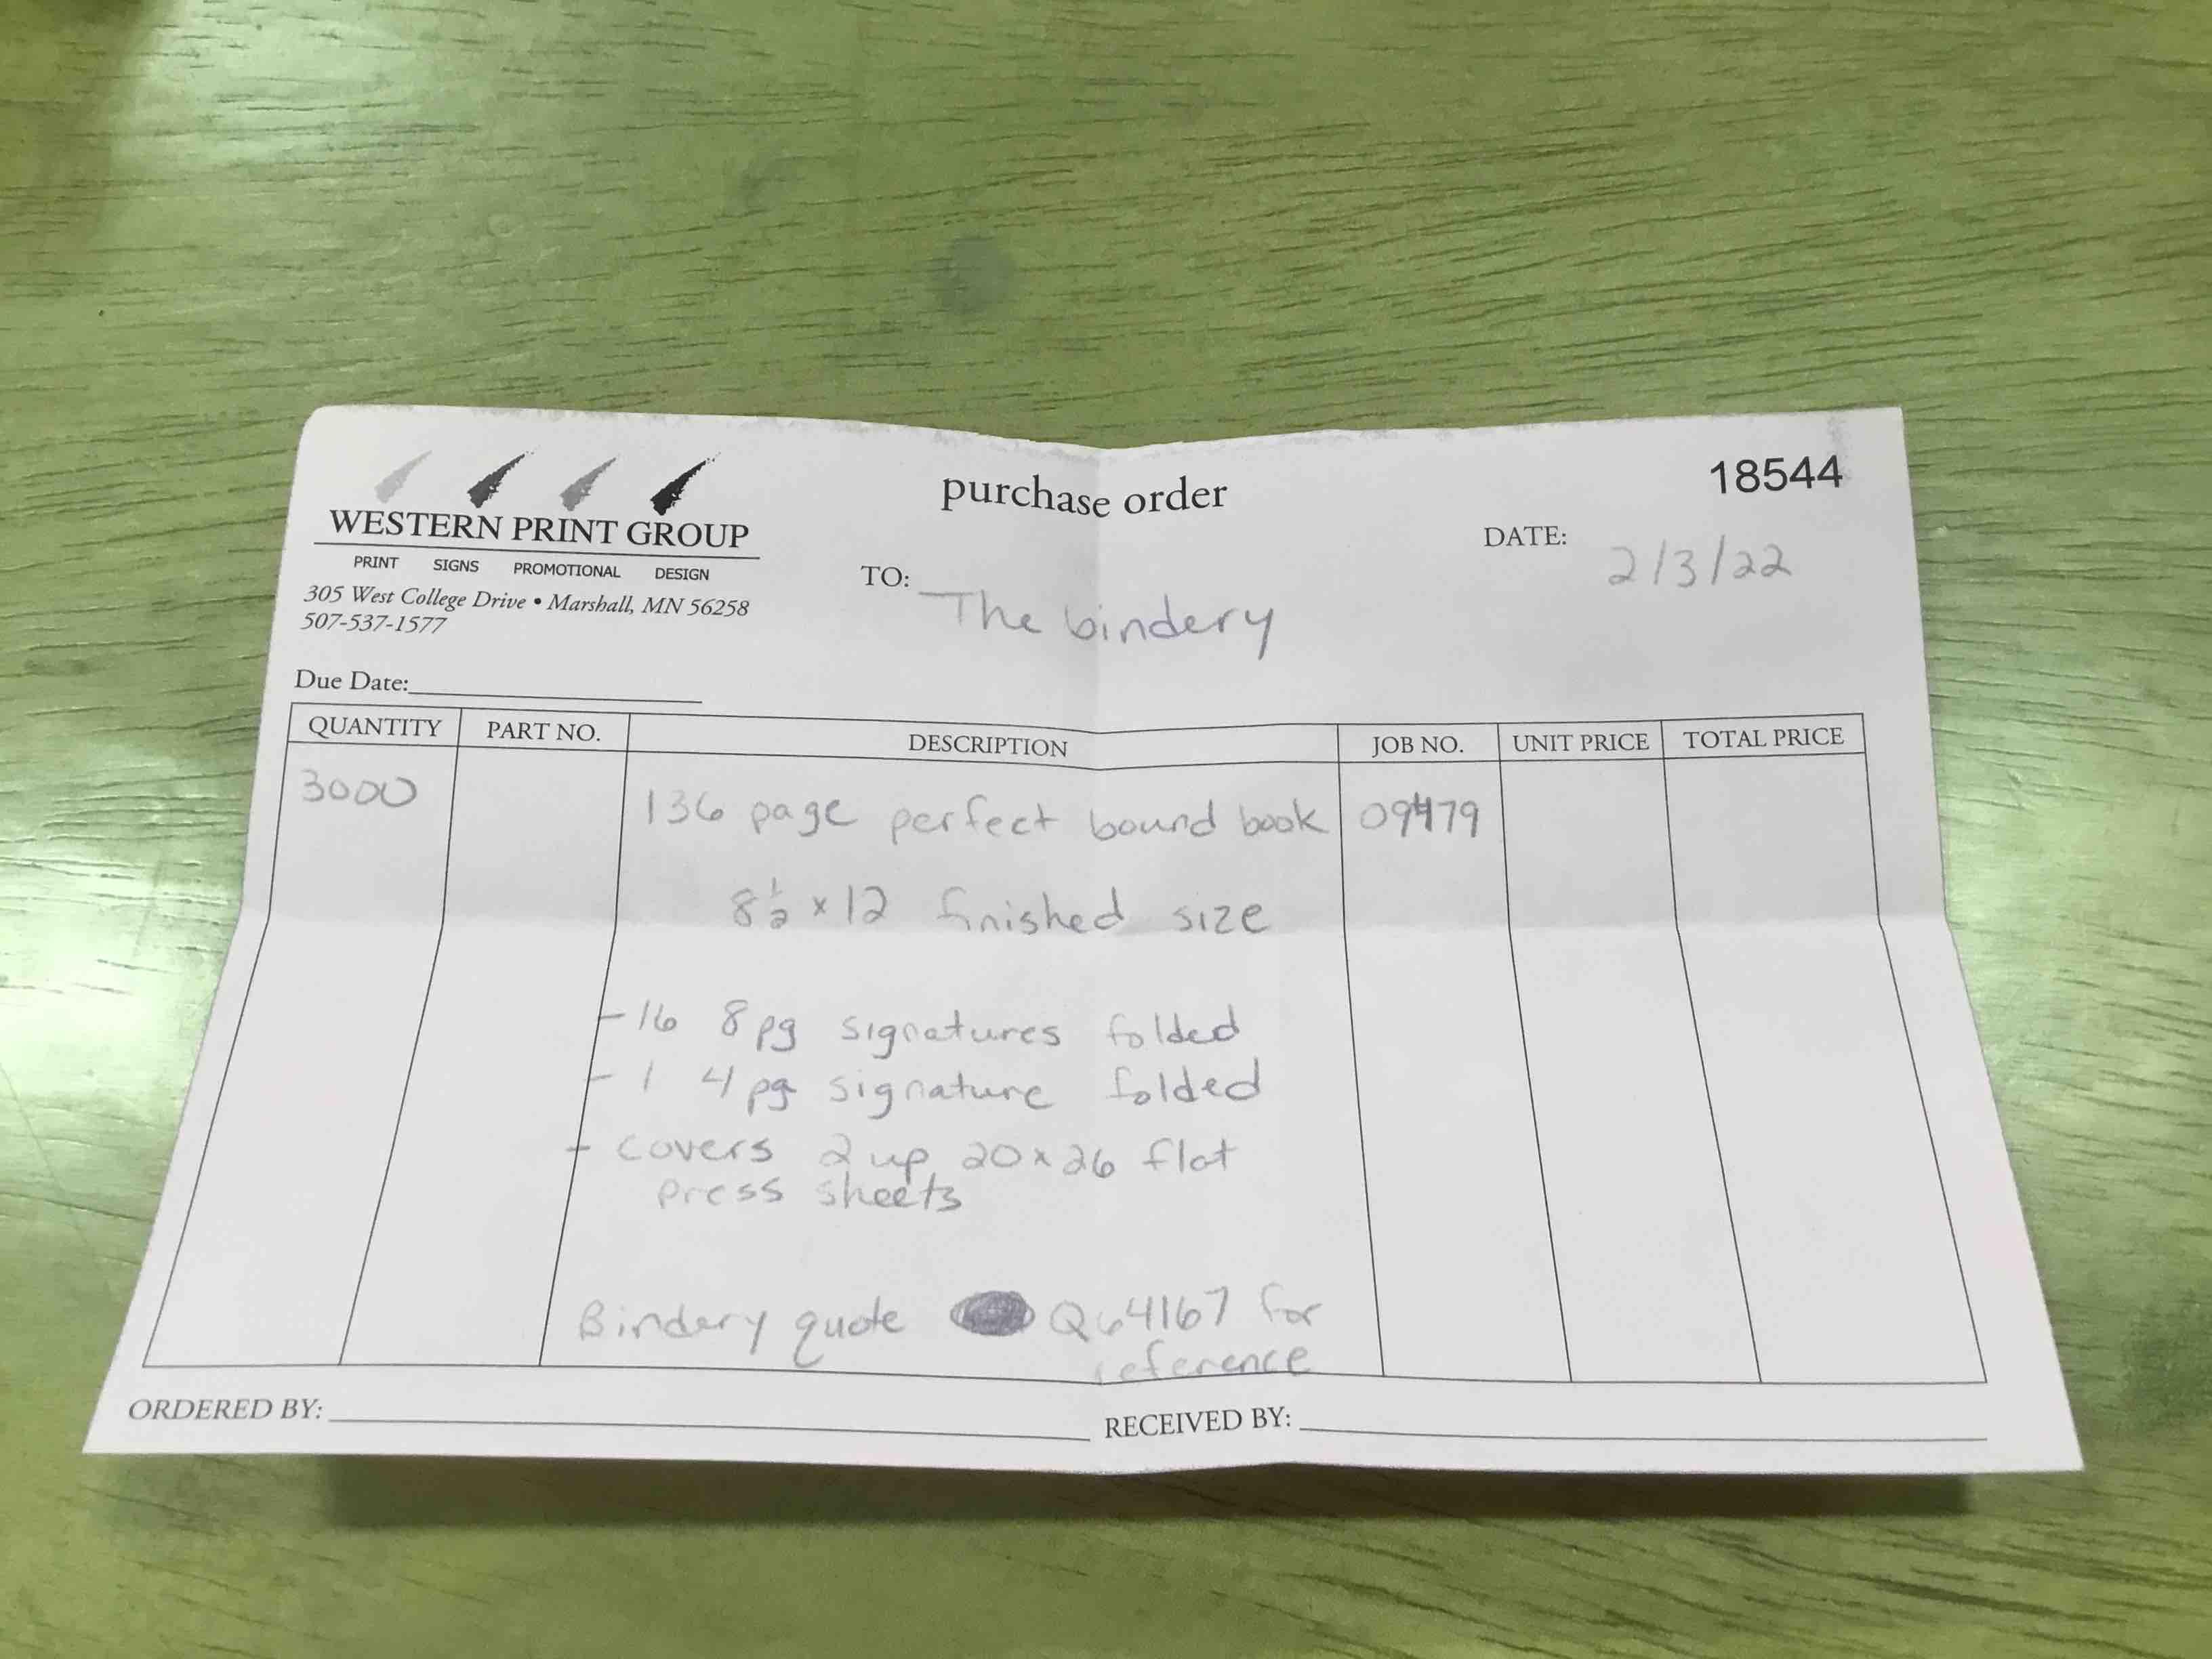 WESTERN PRINT GROUP
PRINT SIGNS PROMOTIONAL DESIGN
305 West College Drive • Marshall, MN 56258
507-537-1577
purchase order
18544
DATE: 2/3/22
TO: The bindery
Due Date:
QUANTITY PART NO. DESCRIPTION JOB NO. UNIT PRICE TOTAL PRICE
3000 136 page perfect bound book 09479
8 1/2 x 12 finished size
- 16 8pg signatures folded
- 1 4pg signature folded
- covers 2 up 20x26 flat
press sheets
Bindery quote Q64167 for
reference
ORDERED BY: RECEIVED BY: